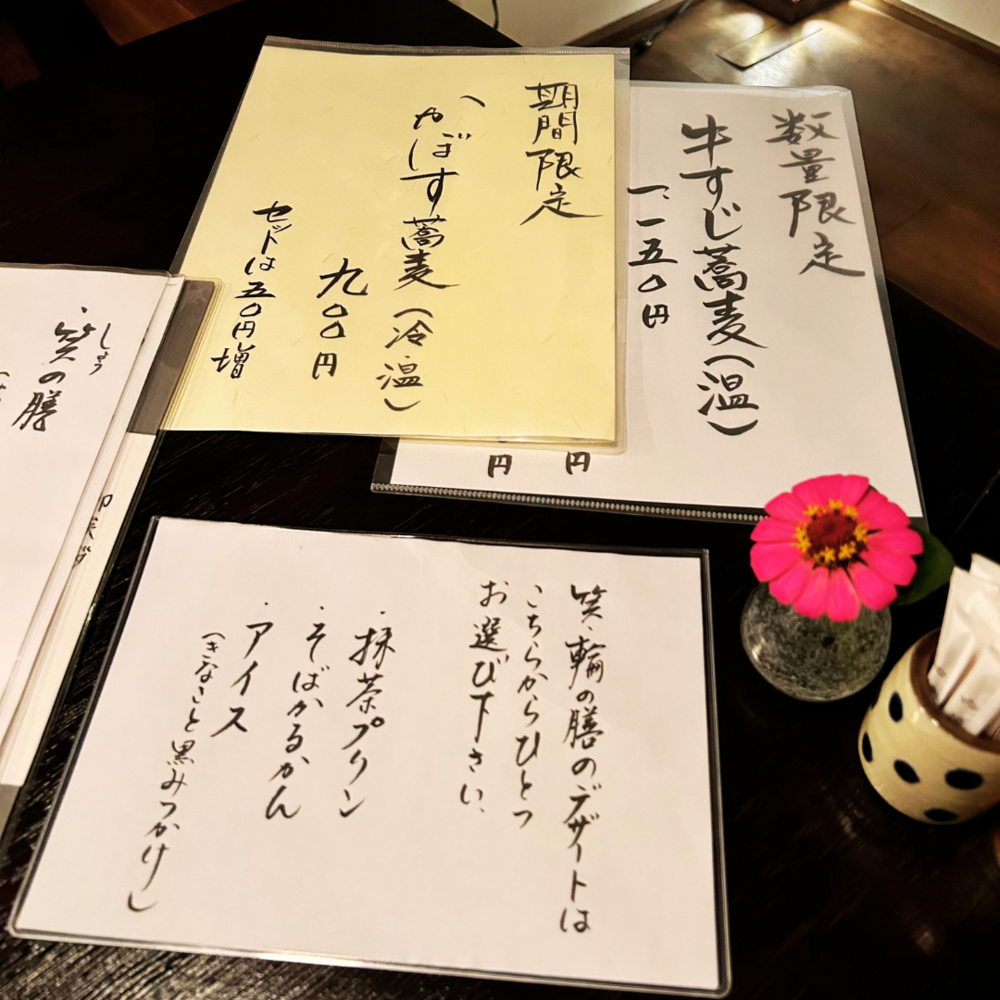 数量限定
牛すじ蕎麦(温)
一、一五〇円
円
円
期間限定
かぼす蕎麦(冷・温)
九〇〇円
セットは五〇円増
しょう
・笑の膳
笑・輪の膳のデザートは
こちらからひとつ
お選び下さい、
・抹茶プリン
・そばかるかん
・アイス
(きなこと黒みつかけ)